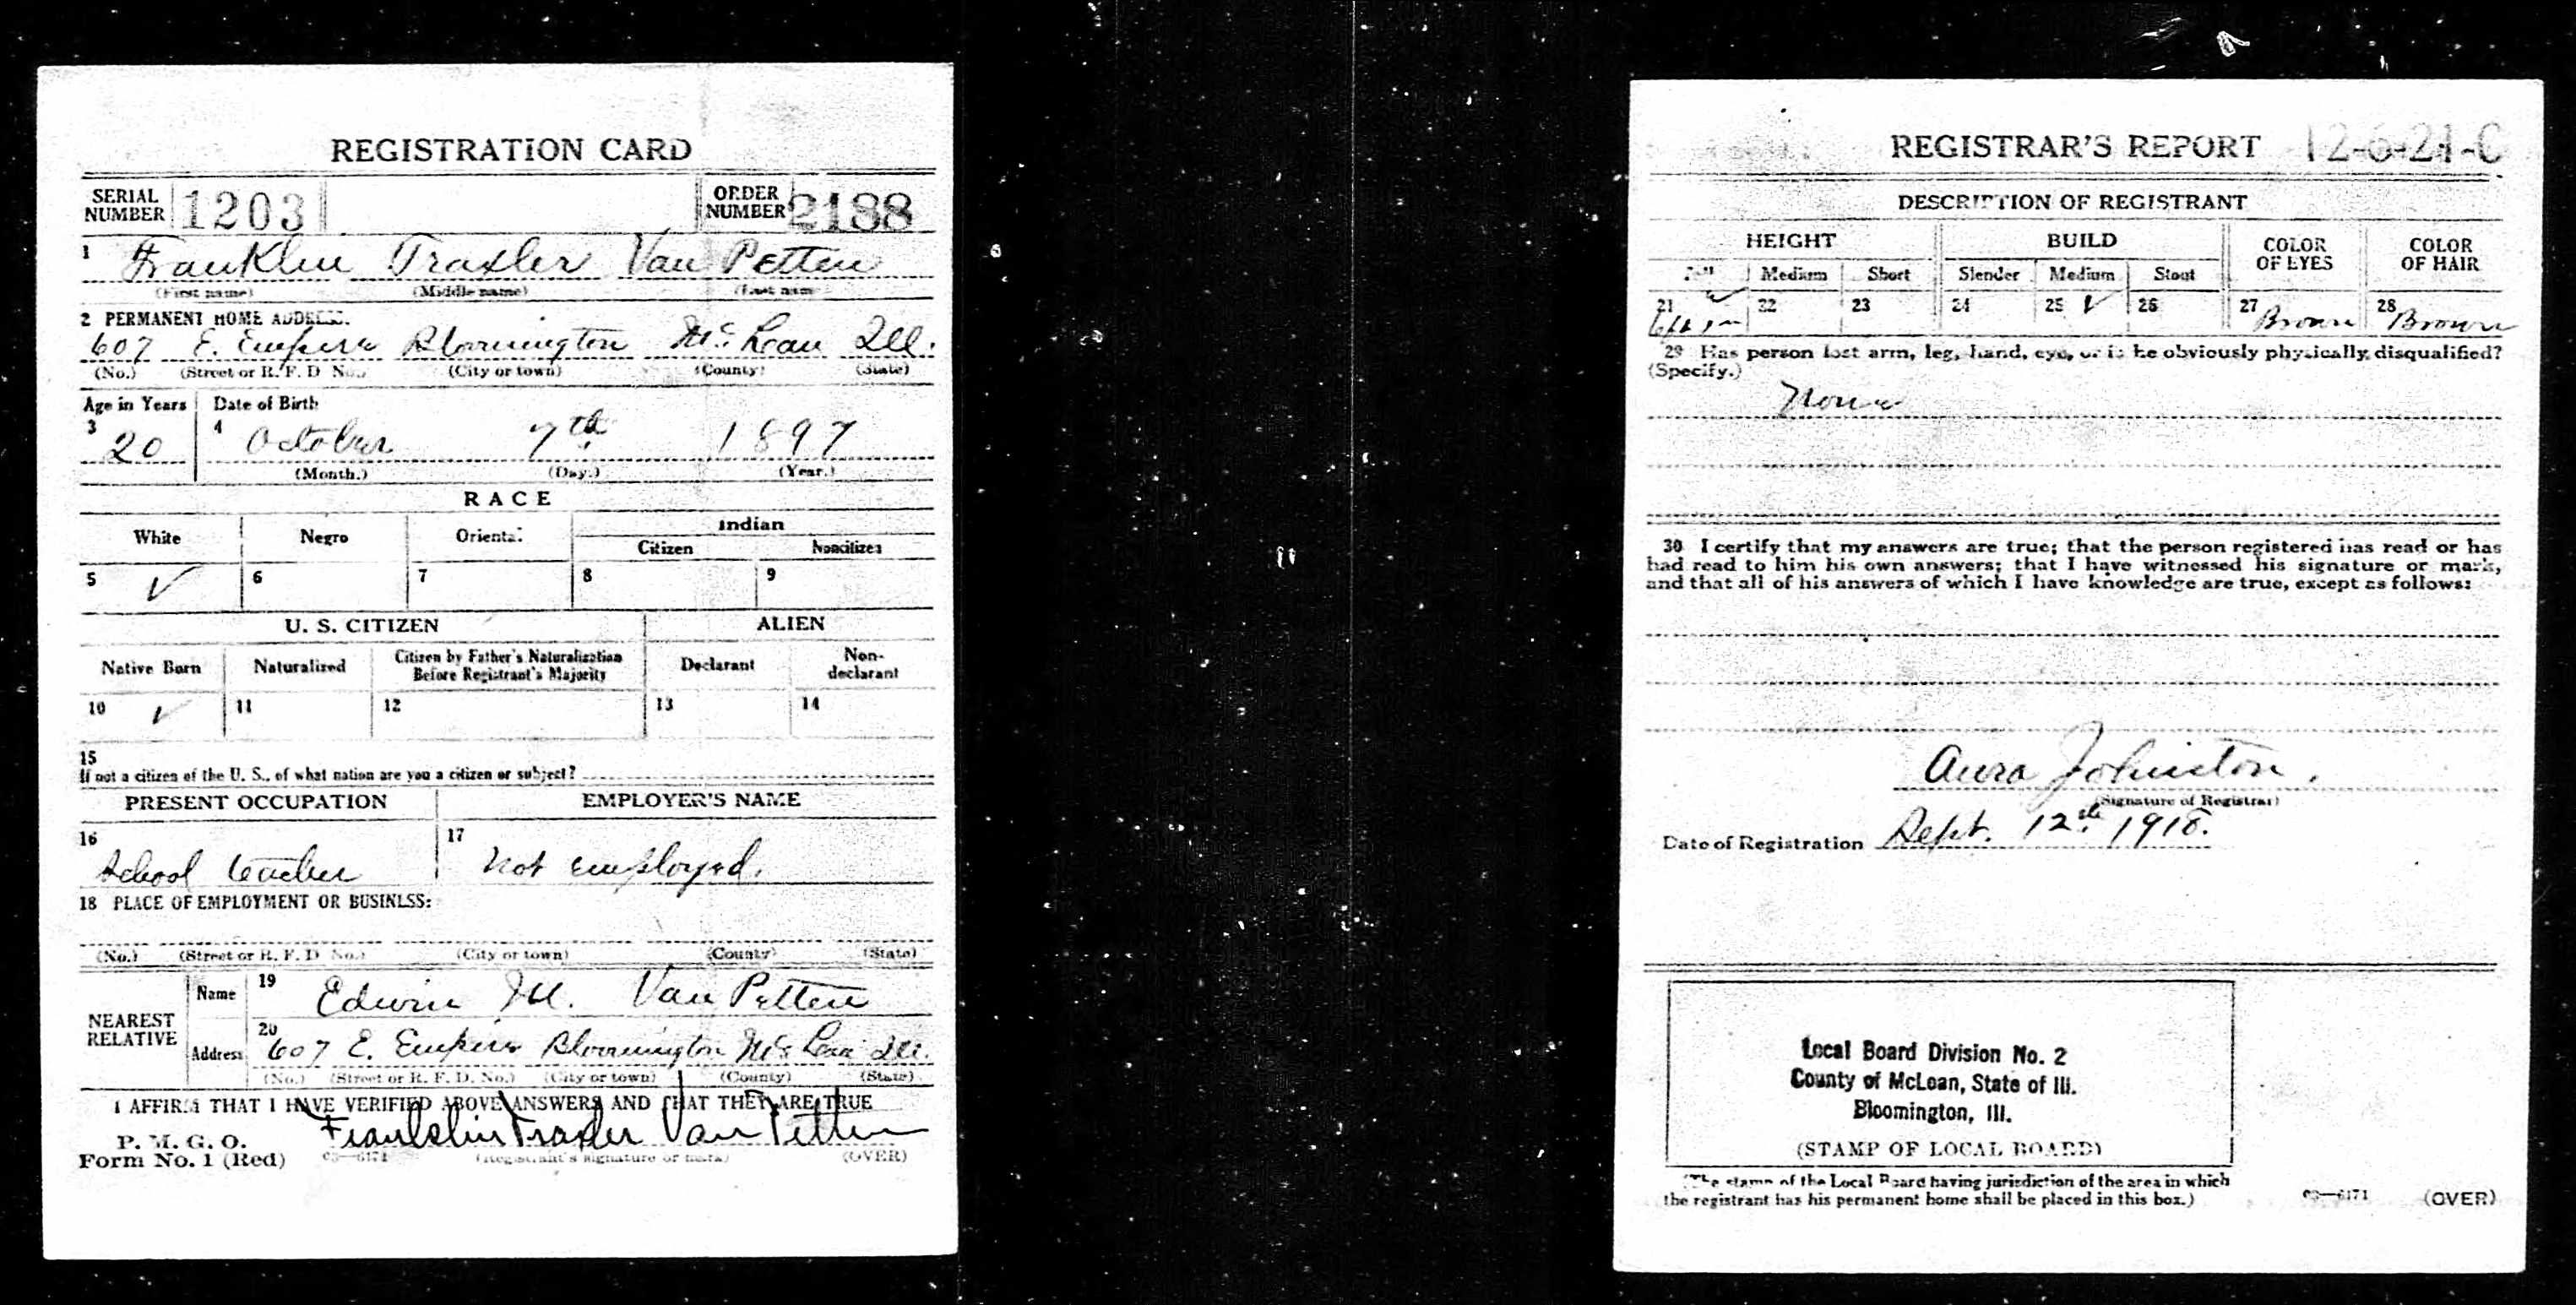 REGISTRATION CARD
SERIAL NUMBER 1203 ORDER NUMBER 2188
1 Franklin Traxler Van Petten
(First name) (Middle name) (Last name)
2 PERMANENT HOME ADDRESS:
607 E. Empire Bloomington McLean Ill.
(No.) (Street or R. F. D. No.) (City or town) (County) (State)
Age in Years Date of Birth
3 20 4 October 7th 1897
(Month.) (Day.) (Year.)
RACE
White Negro Oriental Indian
Citizen Noncitizen
5 ✓ 6 7 8 9
U. S. CITIZEN ALIEN
Native Born Naturalized Citizen by Father's Naturalization Before Registrant's Majority Declarant Non-declarant
10 ✓ 11 12 13 14
15
If not a citizen of the U. S., of what nation are you a citizen or subject?
PRESENT OCCUPATION EMPLOYER'S NAME
16 School teacher 17 not employed.
18 PLACE OF EMPLOYMENT OR BUSINESS:
(No.) (Street or R. F. D. No.) (City or town) (County) (State)
NEAREST RELATIVE Name 19 Edwin M. Van Petten
Address 20 607 E. Empire Bloomington McLean Ill.
(No.) (Street or R. F. D. No.) (City or town) (County) (State)
I AFFIRM THAT I HAVE VERIFIED ABOVE ANSWERS AND THAT THEY ARE TRUE
P. M. G. O.
Form No. 1 (Red) Franklin Traxler Van Petten
03—6171 (Registrant's signature or mark) (OVER)
REGISTRAR'S REPORT 12-6-21-C
DESCRIPTION OF REGISTRANT
HEIGHT BUILD COLOR OF EYES COLOR OF HAIR
Tall Medium Short Slender Medium Stout
21 ✓ 22 23 24 25 ✓ 26 27 Brown 28 Brown
29 Has person lost arm, leg, hand, eye, or is he obviously physically disqualified?
(Specify.)
None
30 I certify that my answers are true; that the person registered has read or has
had read to him his own answers; that I have witnessed his signature or mark,
and that all of his answers of which I have knowledge are true, except as follows:
Aura Johnston.
(Signature of Registrar)
Date of Registration Sept. 12th 1918.
Local Board Division No. 2
County of McLean, State of Ill.
Bloomington, Ill.
(STAMP OF LOCAL BOARD)
(The stamp of the Local Board having jurisdiction of the area in which
the registrant has his permanent home shall be placed in this box.)
03—6171 (OVER)